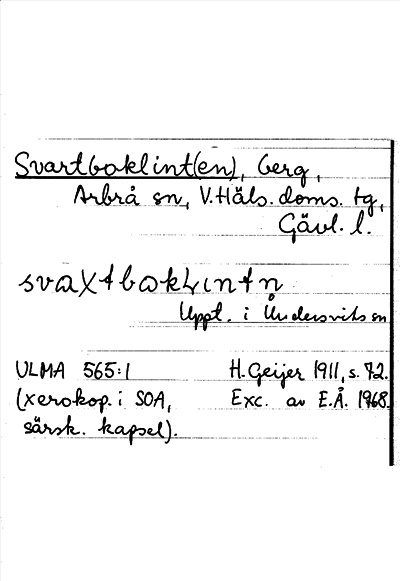 Svartboklint(en), berg,
Arbrå sn, V. Häls. doms. tg,
Gävl. l.
Uppt. i Undersviks sn
ULMA 565:1 H. Geijer 1911, s. 72.
(xerokop. i SOA, Exc. av E.Å. 1968.
särsk. kapsel).